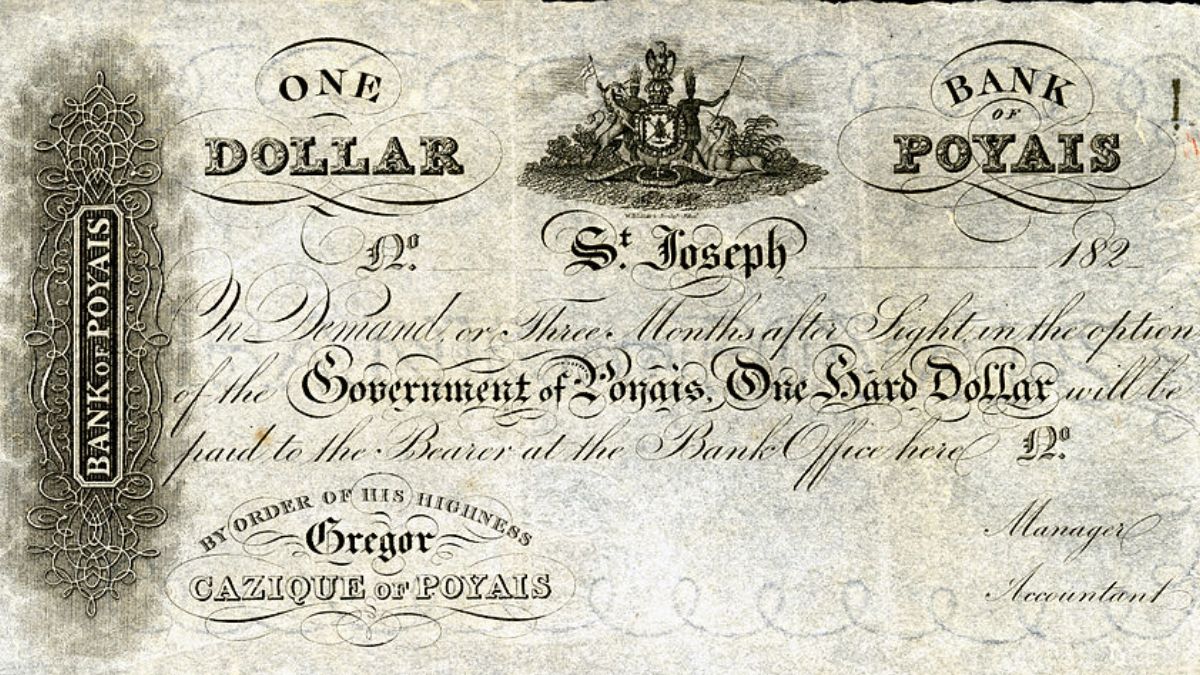 ONE
DOLLAR
BANK
OF
POYAIS
BANK OF POYAIS
No.
St. Joseph
182
On Demand, or Three Months after Sight, in the option
of the Government of Poyais, One Hard Dollar will be
paid to the Bearer at the Bank Office here No.
BY ORDER OF HIS HIGHNESS
Gregor
CAZIQUE OF POYAIS
Manager
Accountant